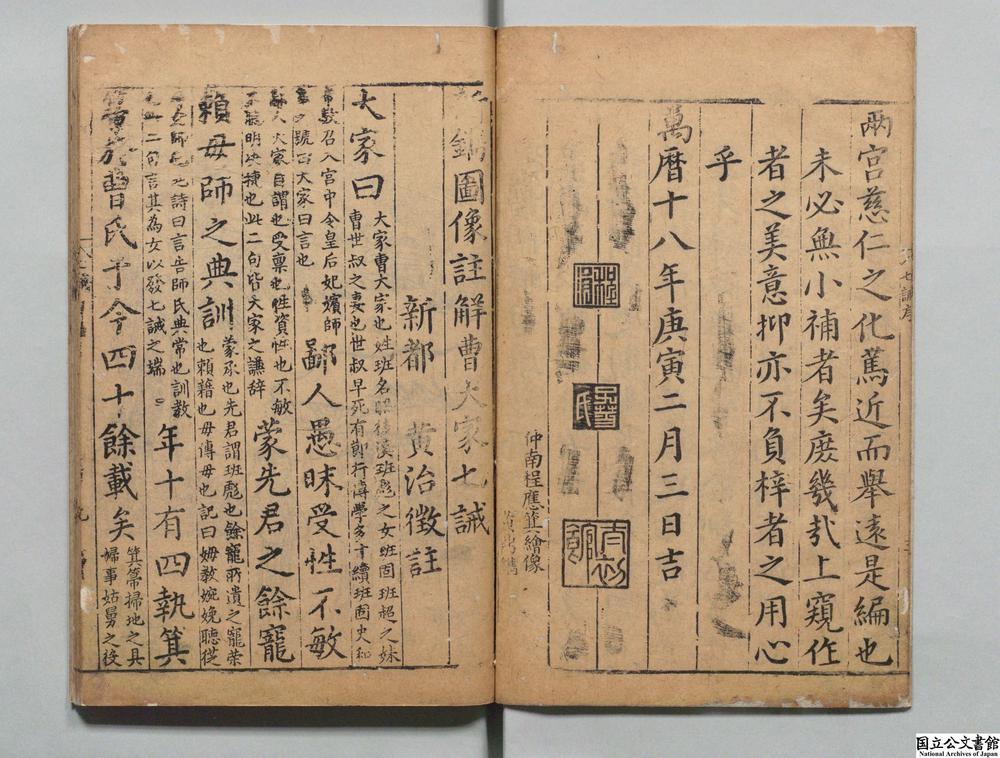 兩宮慈仁之化篤近而舉遠是編也
未必無小補者矣庶幾哉上窺作
者之美意抑亦不負梓者之用心
乎
萬曆十八年庚寅二月三日吉
仲南程應箕繪像
鐫圖像註解曹大家七誡
新都 黃治徵註
大家曰
大家曹大家也姓班名昭後漢班彪之女班固班超之妹
曹世叔之妻也世叔早死有節行博學多才續班固史和
帝數召入宮中令皇后妃嬪師
號曰大家曰言也
鄙人愚昧受性不敏
人大家自謂也受稟也性資性也不敏
不聰明決捷也此二句皆大家之謙辞
蒙先君之餘寵
賴母師之典訓
蒙承也先君謂班彪也餘寵所遺之寵荣
也賴藉也母傅母也記曰姆教婉娩聽從
師氏也詩曰言告師氏典常也訓教
也此二句言其為女以發七誡之端
年十有四執箕
箒於曹氏于今四十餘載矣
箕箒掃地之具
婦事姑舅之役
国立公文書館
National Archives of Japan